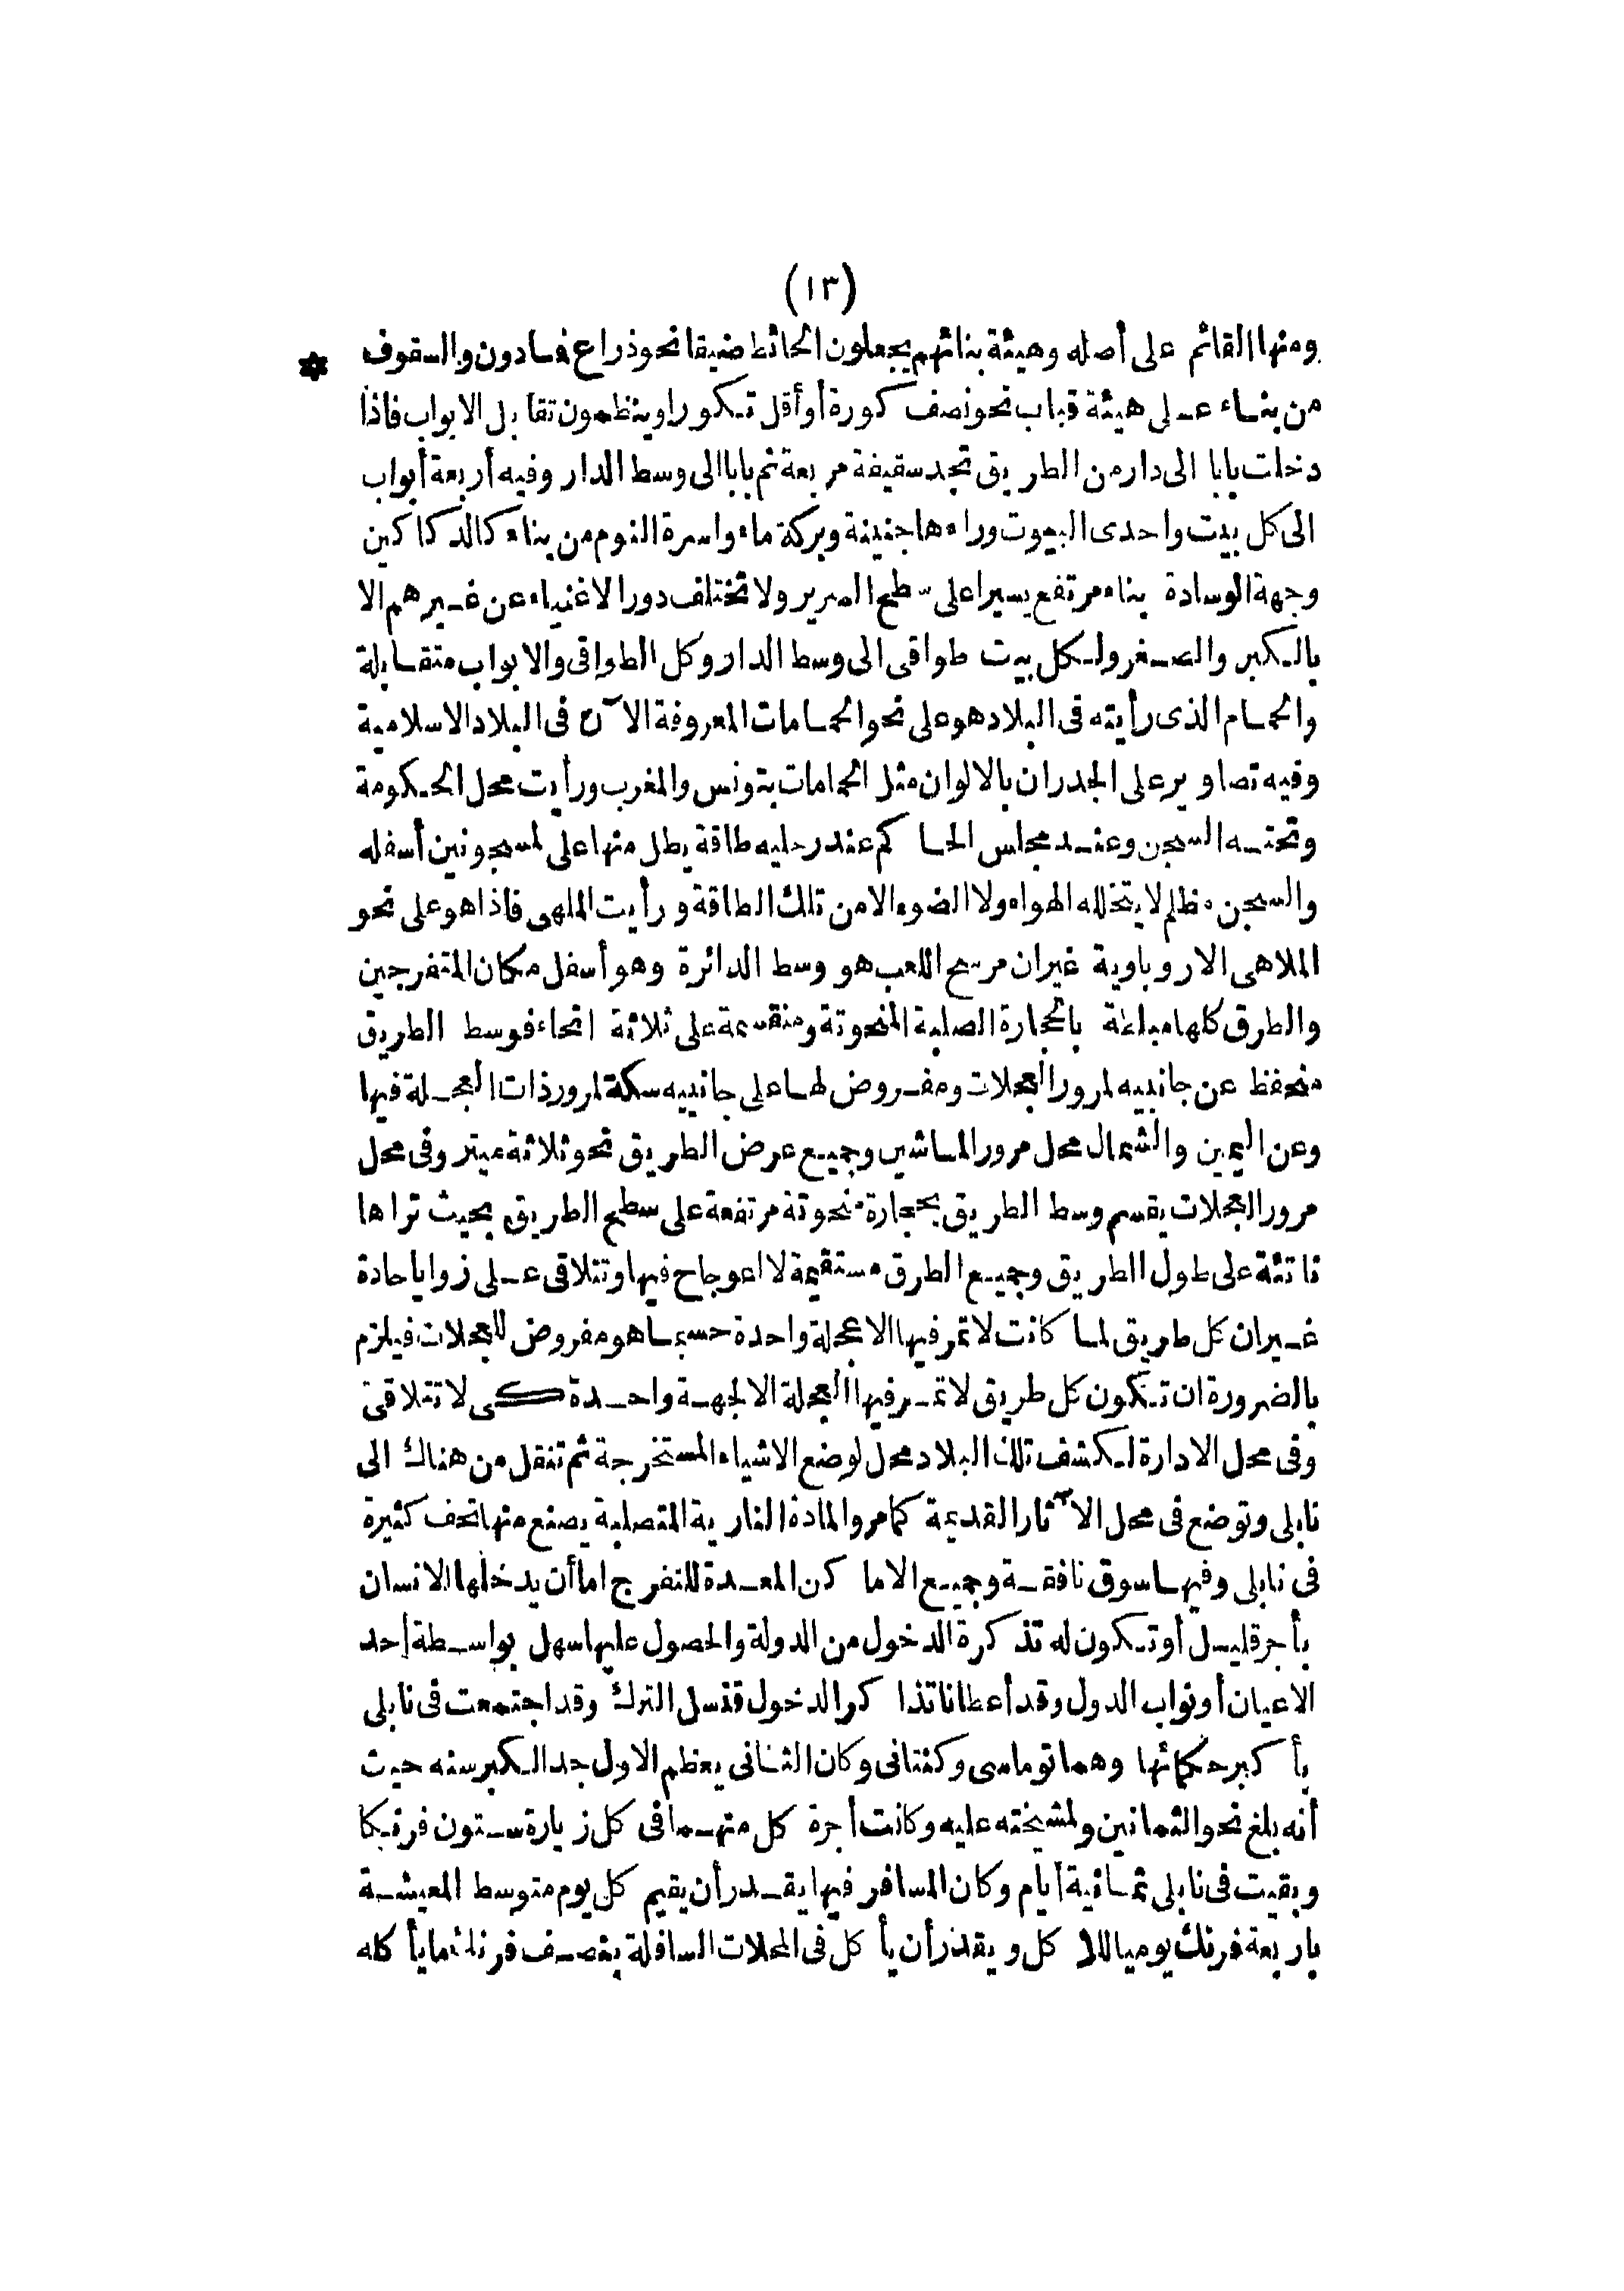 (١٣)
ومنها القائم على أصله وهيئة بنائهم يجعلون الحائط ضيقا نحو ذراع فما دون والسقوف *
من بناء على هيئة قباب نحو نصف كورة أو أقل تكورا وينظمون تقابل الابواب فاذا
دخلت بابا الى دار من الطريق تجد سقيفة مربعة ثم بابا الى وسط الدار وفيه أربعة أبواب
الى كل بيت واحدى البيوت وراءها جنينة وبركة ماء واسرة النوم من بناء كالدكاكين
وجهة الوسادة بناء مرتفع يسيرا على سطح السرير ولا تختلف دور الاغنياء عن غيرهم الا
بالكبر والصغر ولكل بيت طواقى الى وسط الدار وكل الطواقى والابواب متقابلة
والحمام الذى رأيته فى البلاد هو على نحو الحمامات المعروفة الآن فى البلاد الاسلامية
وفيه تصاوير على الجدران بالالوان مثل الحمامات بتونس والمغرب ورأيت محل الحكومة
وتحته السجن وعند مجلس الحاكم عند رجليه طاقة يطل منها على المسجونين أسفله
والسجن مظلم لا يتخلله الهواء ولا الضوء الا من تلك الطاقة ورأيت الملهى فاذا هو على نحو
الملاهى الاروباوية غير ان مرسح اللعب هو وسط الدائرة وهو أسفل مكان المتفرجين
والطرق كلها مبلطة بالحجارة الصلبة المنحوتة ومنقسمة على ثلاثة انحاء فوسط الطريق
منخفظ عن جانبيه لمرور العجلات ومفروض لها على جانبيه سكة لمرور ذات العجلة فيها
وعن اليمين والشمال محل مرور الماشين وجميع عرض الطريق نحو ثلاثة ميتر وفى محل
مرور العجلات يقسم وسط الطريق بحجارة منحوتة مرتفعة على سطح الطريق بحيث تراها
ناتئة على طول الطريق وجميع الطرق مستقيمة لا اعوجاج فيها وتتلاقى على زوايا حادة
غير ان كل طريق لما كانت لا تمر فيها الا عجلة واحدة حسبما هو مفروض للعجلات فيلزم
بالضرورة ان تكون كل طريق لا تمر فيها العجلة الا لجهة واحدة كى لا تتلاقى
وفى محل الادارة لكشف تلك البلاد محل لوضع الاشياء المستخرجة ثم تنقل من هناك الى
نابلى وتوضع فى محل الآثار القديمة كما مر والمادة النارية المتصلبة يصنع منها تحف كثيرة
فى نابلى وفيها سوق نافقة وجميع الاماكن المعدة للتفرج اما أن يدخلها الانسان
بأجر قليل أو تكون له تذكرة الدخول من الدولة والحصول عليها سهل بواسطة أحد
الاعيان أو نواب الدول وقد أعطانا تذاكر الدخول قنسل الترك وقد اجتمعت فى نابلى
بأكبر حكمائها وهما توماسى وكنتانى وكان الثانى يعظم الاول جدا لكبر سنه حيث
أنه بلغ نحو الثمانين ولمشيخته عليه وكانت أجرة كل منهما فى كل زيارة ستون فرنكا
وبقيت فى نابلى ثمانية أيام وكان المسافر فيها يقدر أن يقيم كل يوم متوسط المعيشة
باربعة فرنك يوميا للاكل ويقدر أن يأكل فى المحلات السافلة بنصف فرنك ما يأكله